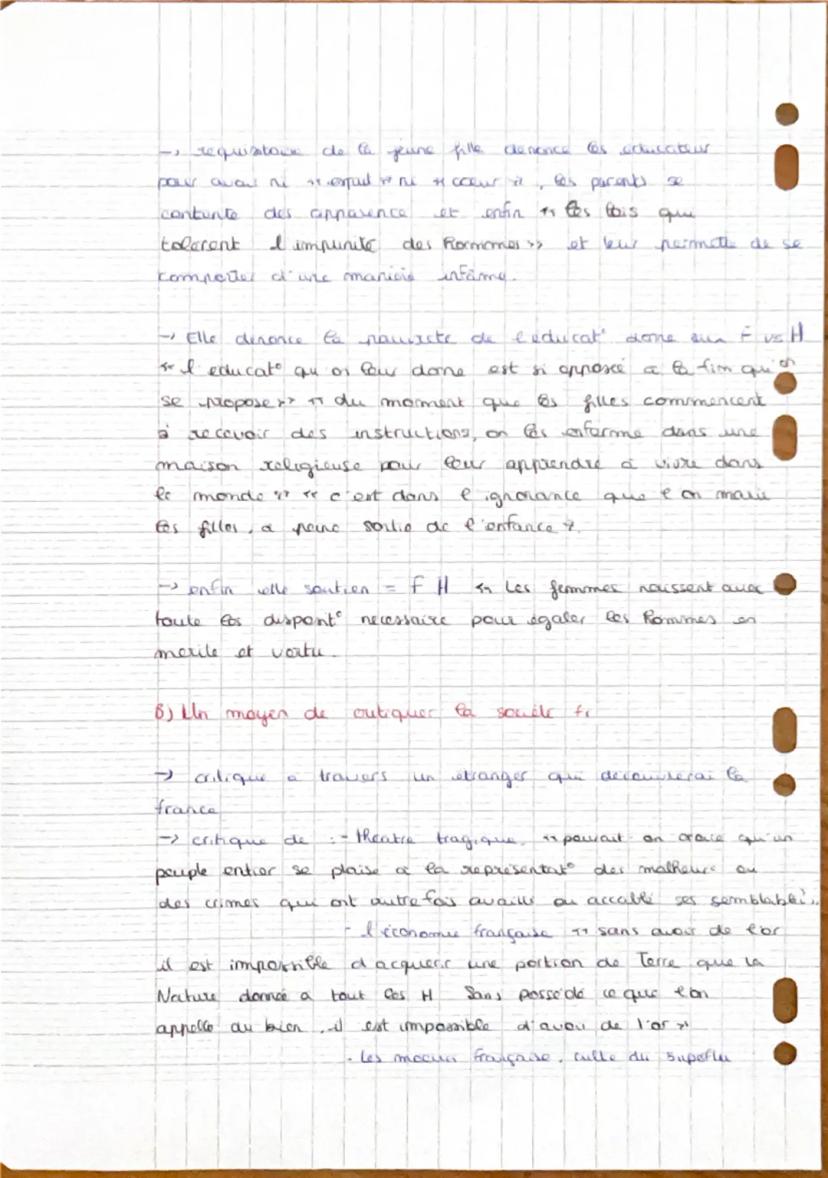 -> requisitoire de la jeune fille denonce les educateur
pour avoir ni "esprit" ni "coeur", les parents se
contente des apparence et enfin "les lois qui
tolerent l'impunité des hommes" et leur permette de se
comporter d'une maniere infâme.
-> Elle denonce la pauvrete de l'educat° donne aux F vs H
"l'educat° qu'on leur donne est si opposée a la fin qu'on
se propose" "du moment que les filles commencent
à recevoir des instructions, on les enferme dans une
maison religieuse pour leur apprendre a vivre dans
le monde" "c'est dans l'ignorance que l'on marie
les filles, a peine sortie de l'enfance".
-> enfin elle soutien = F H "Les femmes naissent avec
toute les disposit° necessaire pour égaler les hommes en
merite et vertu.
B) Un moyen de critiquer la société fr
-> critique a travers un etranger qui decouvrerai la
france
-> critique de :- theatre tragique, "pourait on croire qu'un
peuple entier se plaise a la representat° des malheurs ou
des crimes qui ont autrefois availli ou accablé ses semblables"
- l'économie française "sans avoir de l'or
il est impossible d'acquerir une portion de Terre que la
Nature donnée a tout les H Sans posséde ce que l'on
appelle du bien, il est impossible d'avoir de l'or"
- les moeurs française, culte du superflu